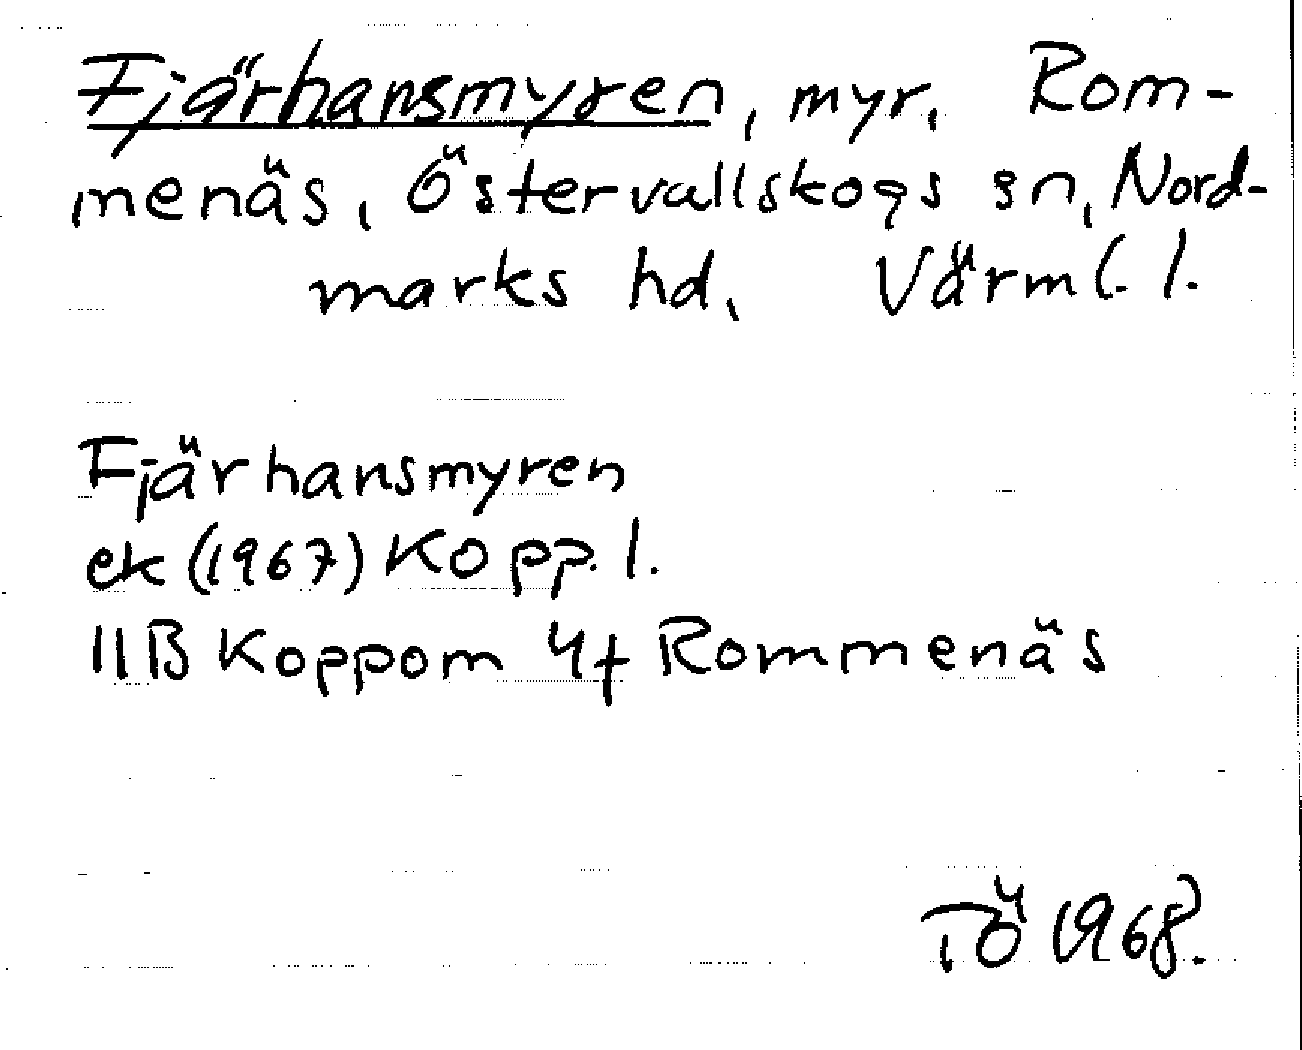 Fjärhansmyren, myr, Rom-
menäs, Östervallskogs sn, Nord-
marks hd, Värml. l.
Fjärhansmyren
ek (1967) Kopp. l.
11B Koppom 4f Rommenäs
TÖ 1968.